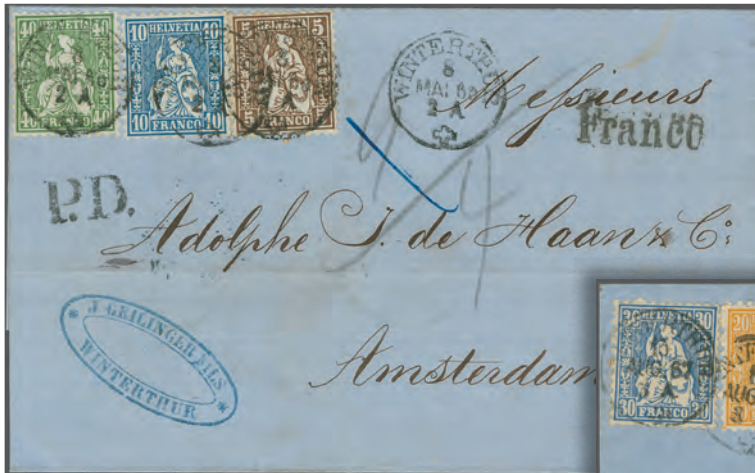 40 HELVETIA 40
40 FRANCO 40
10 HELVETIA 10
10 FRANCO 10
5 HELVETIA 5
5 FRANCO 5
WINTERTHUR
8
MAI 66
2 A
Messieurs
Franco
P.D.
Adolphe J. de Haan & Co:
* J. GEILINGER FILS *
WINTERTHUR
Amsterdam
30 HELVETIA 30
30 FRANCO 30
AUG 67
20
AUG